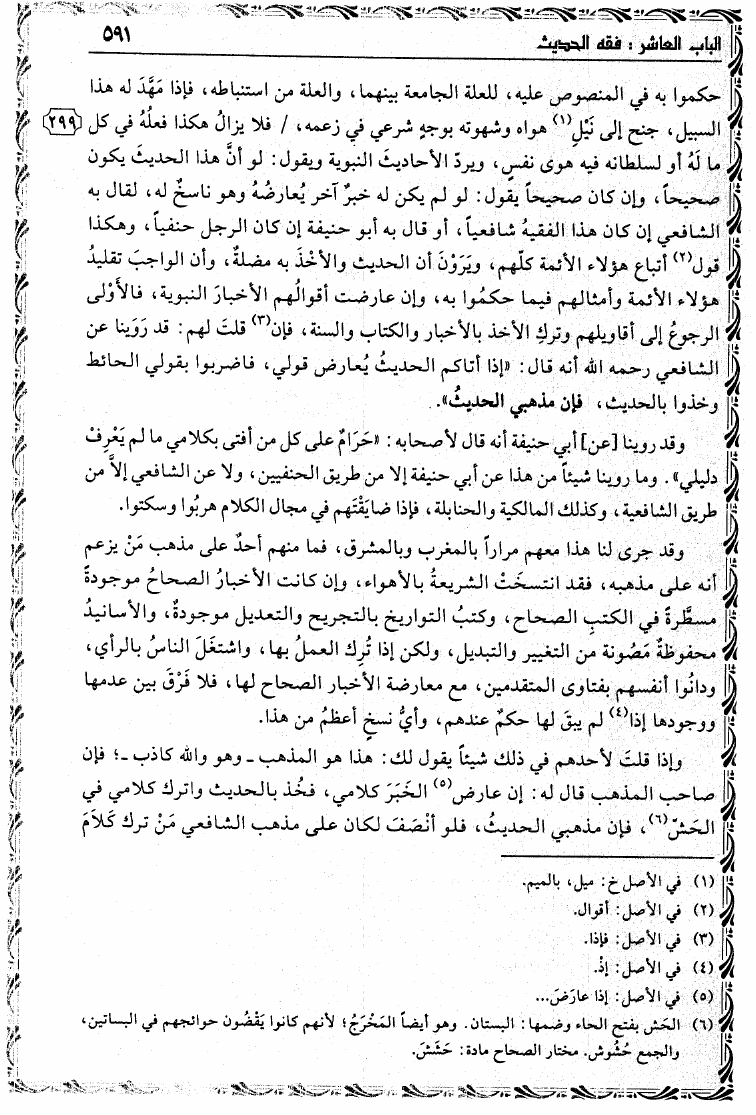 الباب العاشر : فقه الحديث
٥٩١
حكموا به في المنصوص عليه، للعلة الجامعة بينهما، والعلة من استنباطه، فإذا مَهَّدَ له هذا
السبيل، جنح إلى نَيْلِ(١) هواه وشهوته بوجهٍ شرعي في زعمه، / فلا يزالُ هكذا فعلُهُ في كل
٢٩٩
ما لَهُ أو لسلطانه فيه هوى نفسٍ، ويردّ الأحاديثَ النبوية ويقول: لو أنَّ هذا الحديثَ يكون
صحيحاً، وإن كان صحيحاً يقول: لو لم يكن له خبرٌ آخر يُعارضُهُ وهو ناسخٌ له، لقال به
الشافعي إن كان هذا الفقيهُ شافعياً، أو قال به أبو حنيفة إن كان الرجل حنفياً، وهكذا
قول(٢) أتباع هؤلاء الأئمة كلّهم، ويَرَوْنَ أن الحديث والأخْذَ به مضلةٌ، وأن الواجبَ تقليدُ
هؤلاء الأئمة وأمثالهم فيما حكمُوا به، وإن عارضت أقوالُهم الأخبارَ النبوية، فالأَوْلى
الرجوعُ إلى أقاويلهم وتركِ الأخذ بالأخبار والكتاب والسنة، فإن(٣) قلتَ لهم: قد رَوَينا عن
الشافعي رحمه الله أنه قال: «إذا أتاكم الحديثُ يُعارض قولي، فاضربوا بقولي الحائط
وخذوا بالحديث، فإن مذهبي الحديثُ».
وقد روينا [عن] أبي حنيفة أنه قال لأصحابه: «حَرَامٌ على كل من أفتى بكلامي ما لم يَعْرِفْ
دليلي». وما روينا شيئاً من هذا عن أبي حنيفة إلا من طريق الحنفيين، ولا عن الشافعي إلاَّ من
طريق الشافعية، وكذلك المالكية والحنابلة، فإذا ضايَقْتَهم في مجال الكلام هربُوا وسكتوا.
وقد جرى لنا هذا معهم مراراً بالمغرب وبالمشرق، فما منهم أحدٌ على مذهب مَنْ يزعم
أنه على مذهبه، فقد انتسخَتْ الشريعةُ بالأهواء، وإن كانت الأخبارُ الصحاحُ موجودةً
مسطَّرةً في الكتبِ الصحاح، وكتبُ التواريخ بالتجريح والتعديل موجودةٌ، والأسانيدُ
محفوظةٌ مَصُونة من التغيير والتبديل، ولكن إذا تُرِك العملُ بها، واشتغَلَ الناسُ بالرأي،
ودانُوا أنفسهم بفتاوى المتقدمين، مع معارضة الأخبار الصحاح لها، فلا فَرْقَ بين عدمها
ووجودها إذا(٤) لم يبقَ لها حكمٌ عندهم، وأيُّ نسخٍ أعظمُ من هذا.
وإذا قلتَ لأحدهم في ذلك شيئاً يقول لك: هذا هو المذهب ـ وهو والله كاذب ـ؛ فإن
صاحب المذهب قال له: إن عارض(٥) الخَبَرَ كلامي، فخُذ بالحديث واترك كلامي في
الحَشّ(٦)، فإن مذهبي الحديثُ، فلو أنْصَفَ لكان على مذهب الشافعي مَنْ ترك كَلاَمَ
(١) في الأصل خ: ميل، بالميم.
(٢) في الأصل: أقوال.
(٣) في الأصل: فإذا.
(٤) في الأصل: إذْ.
(٥) في الأصل: إذا عارَضَ...
(٦) الحَش بفتح الحاء وضمها: البستان. وهو أيضاً المَخْرَجُ؛ لأنهم كانوا يَقْضُون حوائجهم في البساتين،
والجمع حُشُوش. مختار الصحاح مادة: حَشَشَ.